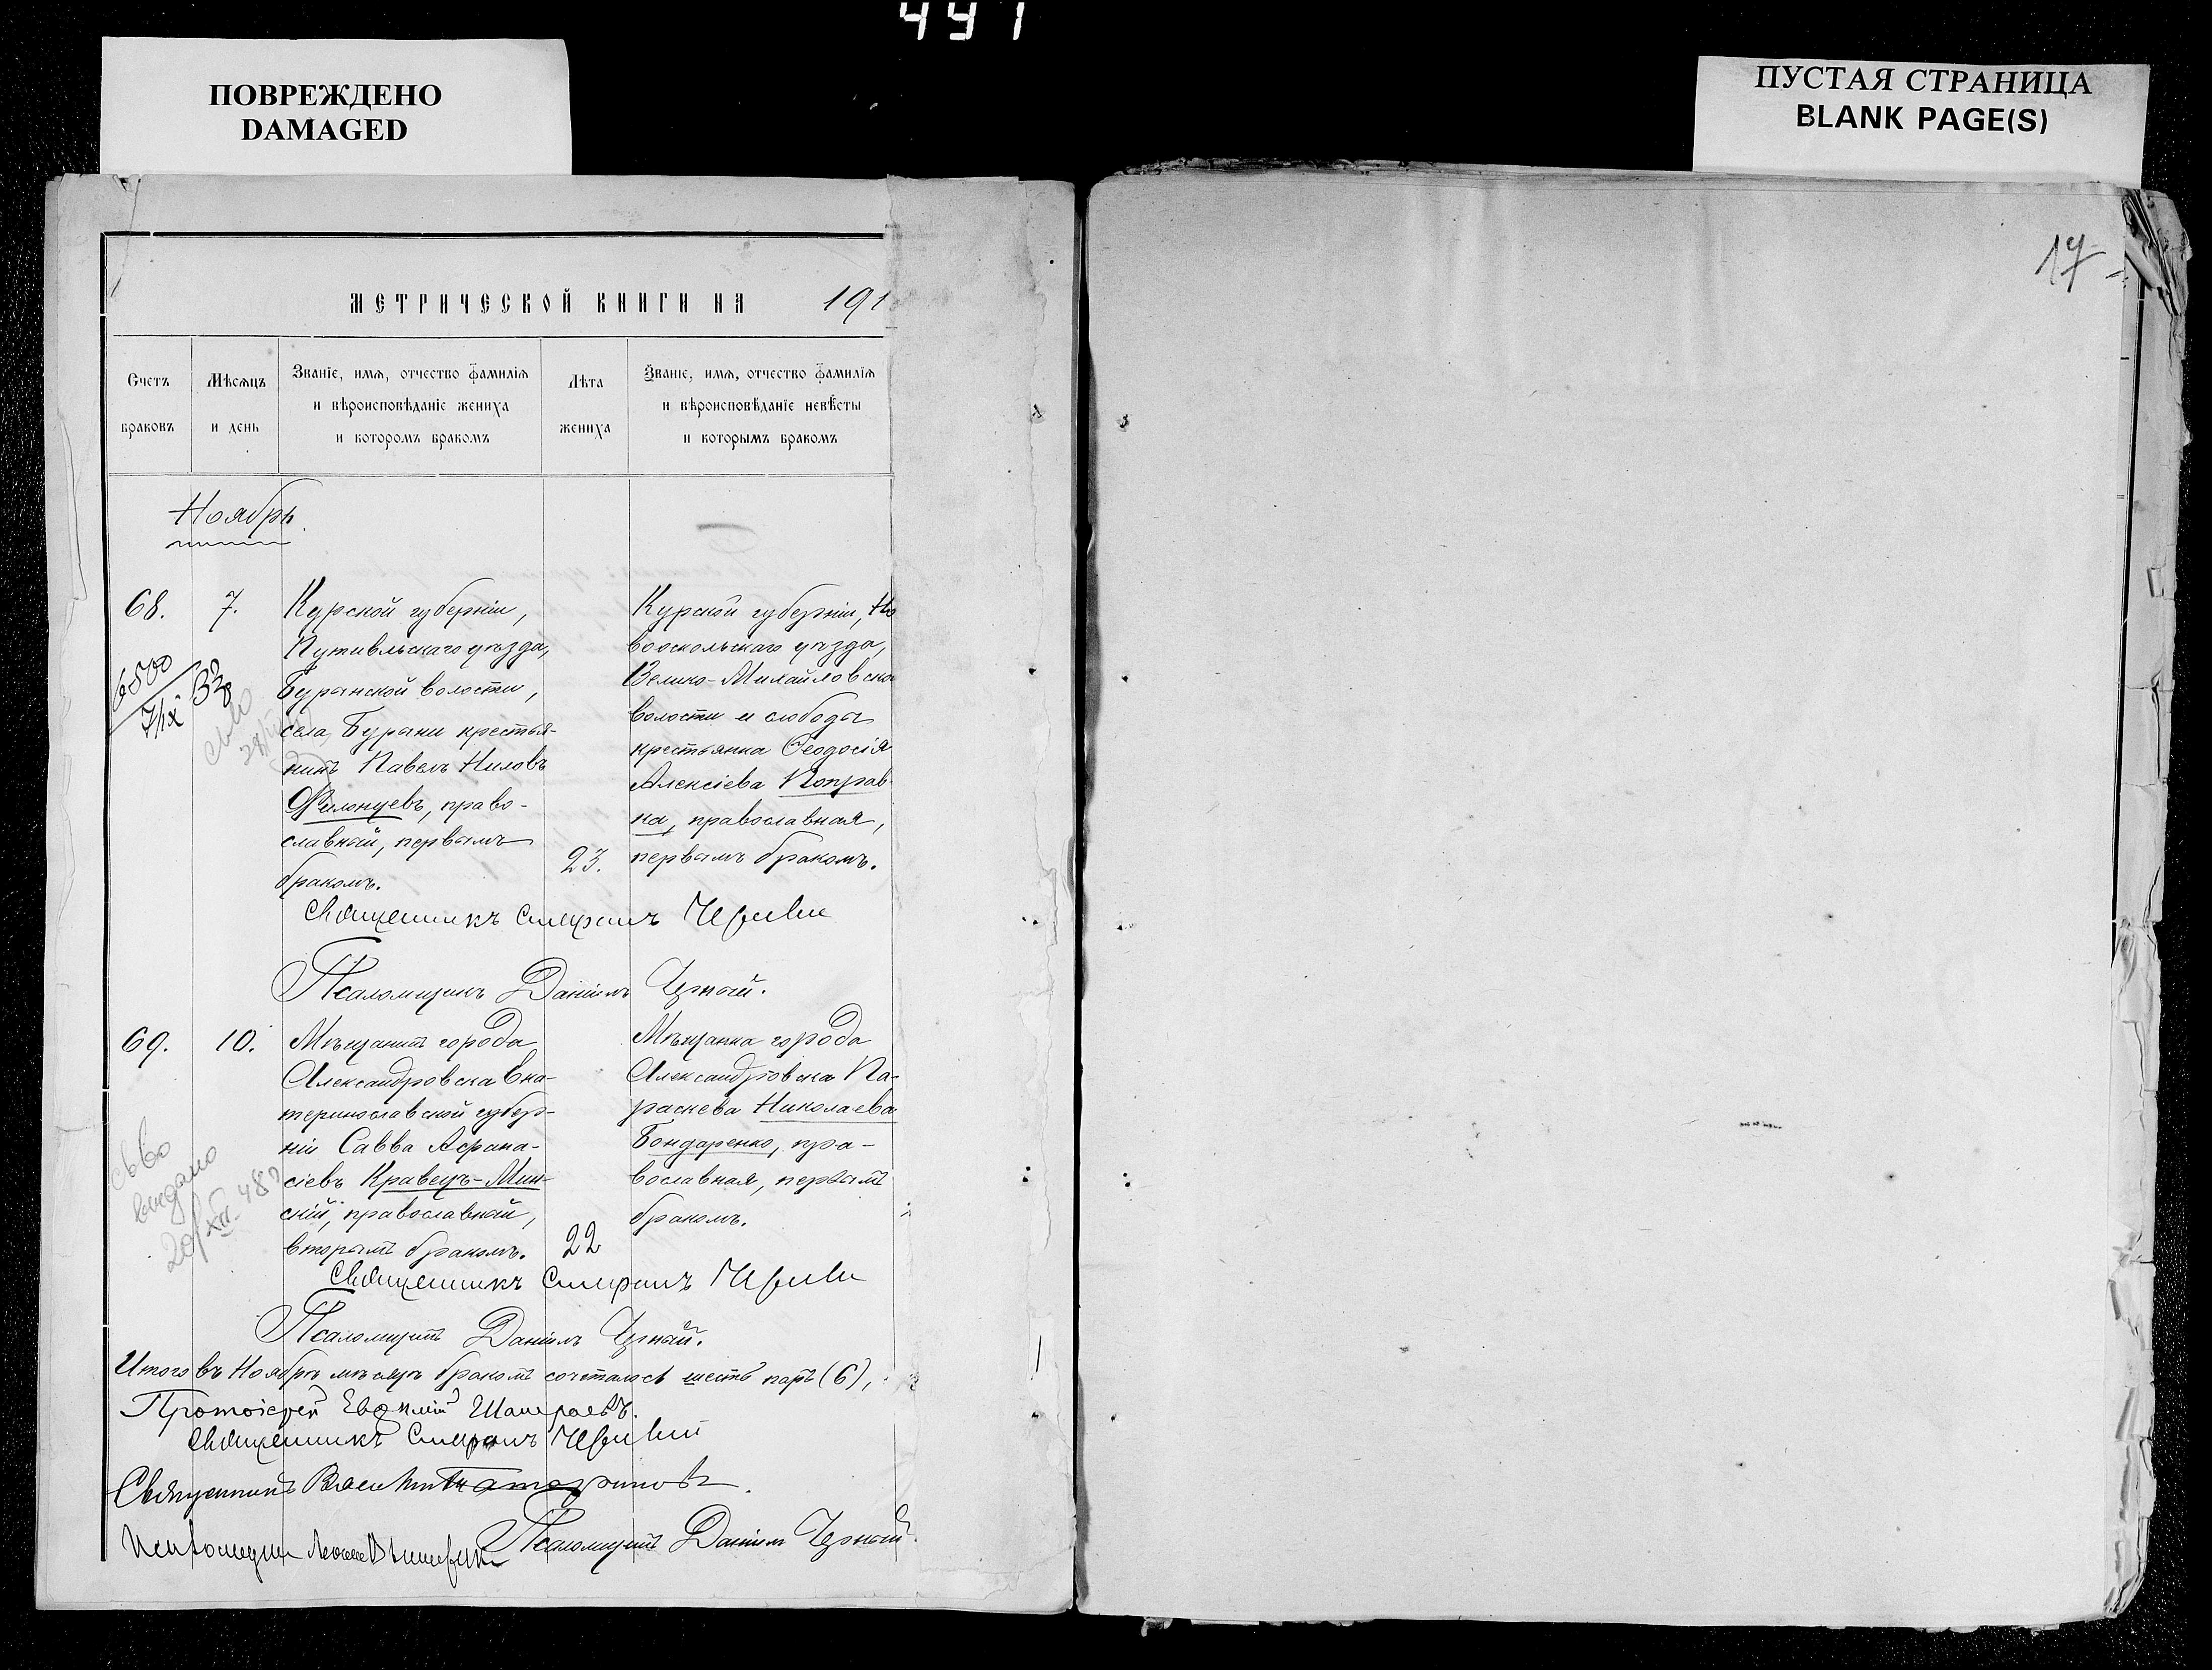 441
ПОВРЕЖДЕНО
DAMAGED
ПУСТАЯ СТРАНИЦА
BLANK PAGE(S)
17
МЕТРИЧЕСКОЙ КНИГИ НА 191
Счетъ браковъ
Мѣсяцъ и день
Званіе, имя, отчество фамилія
и вѣроисповѣданіе жениха
и которомъ бракомъ
Лѣта жениха
Званіе, имя, отчество фамилія
и вѣроисповѣданіе невѣсты
и которымъ бракомъ
Ноябрь.
68. 7.
Курской губерніи,
Путивльскаго уѣзда,
Бурынской волости,
села Бурыни крестья-
нинъ Павелъ Ниловъ
Филонцевъ, право-
славный, первымъ
бракомъ.
23.
Курской губерніи, Но
вооскольскаго уѣзда,
Велико-Михайловско
волости и слободы
крестьянка Ѳеодосія
Алексіева Поправ-
ка, православная,
первымъ бракомъ.
Священникъ
Псаломщикъ Даніилъ Черный.
69. 10.
Мѣщанинъ города
Александровска Ека-
теринославской губер-
ніи Савва Аѳана-
сіевъ Кравецъ-Мин-
скій, православный,
вторымъ бракомъ.
22
Мѣщанка города
Александровска Па-
раскева Николаева
Бондаренко, пра-
вославная, первымъ
бракомъ.
выдано
Священникъ
Псаломщикъ Даніилъ Черный.
Итого въ Ноябрѣ мѣсяцѣ бракомъ сочеталось шесть паръ (6),
Протоіерей Евѳимій
Священникъ
Священникъ
Псаломщикъ Даніилъ Черный.
Псаломщикъ